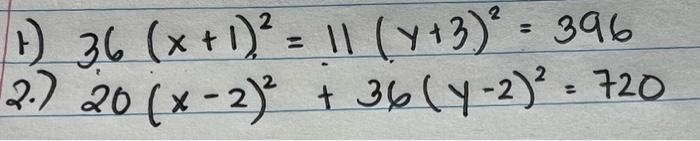 1.) 36 (x + 1)² = 11 (y+3)² = 396
2.) 20 (x - 2)² + 36 (y - 2)² = 720